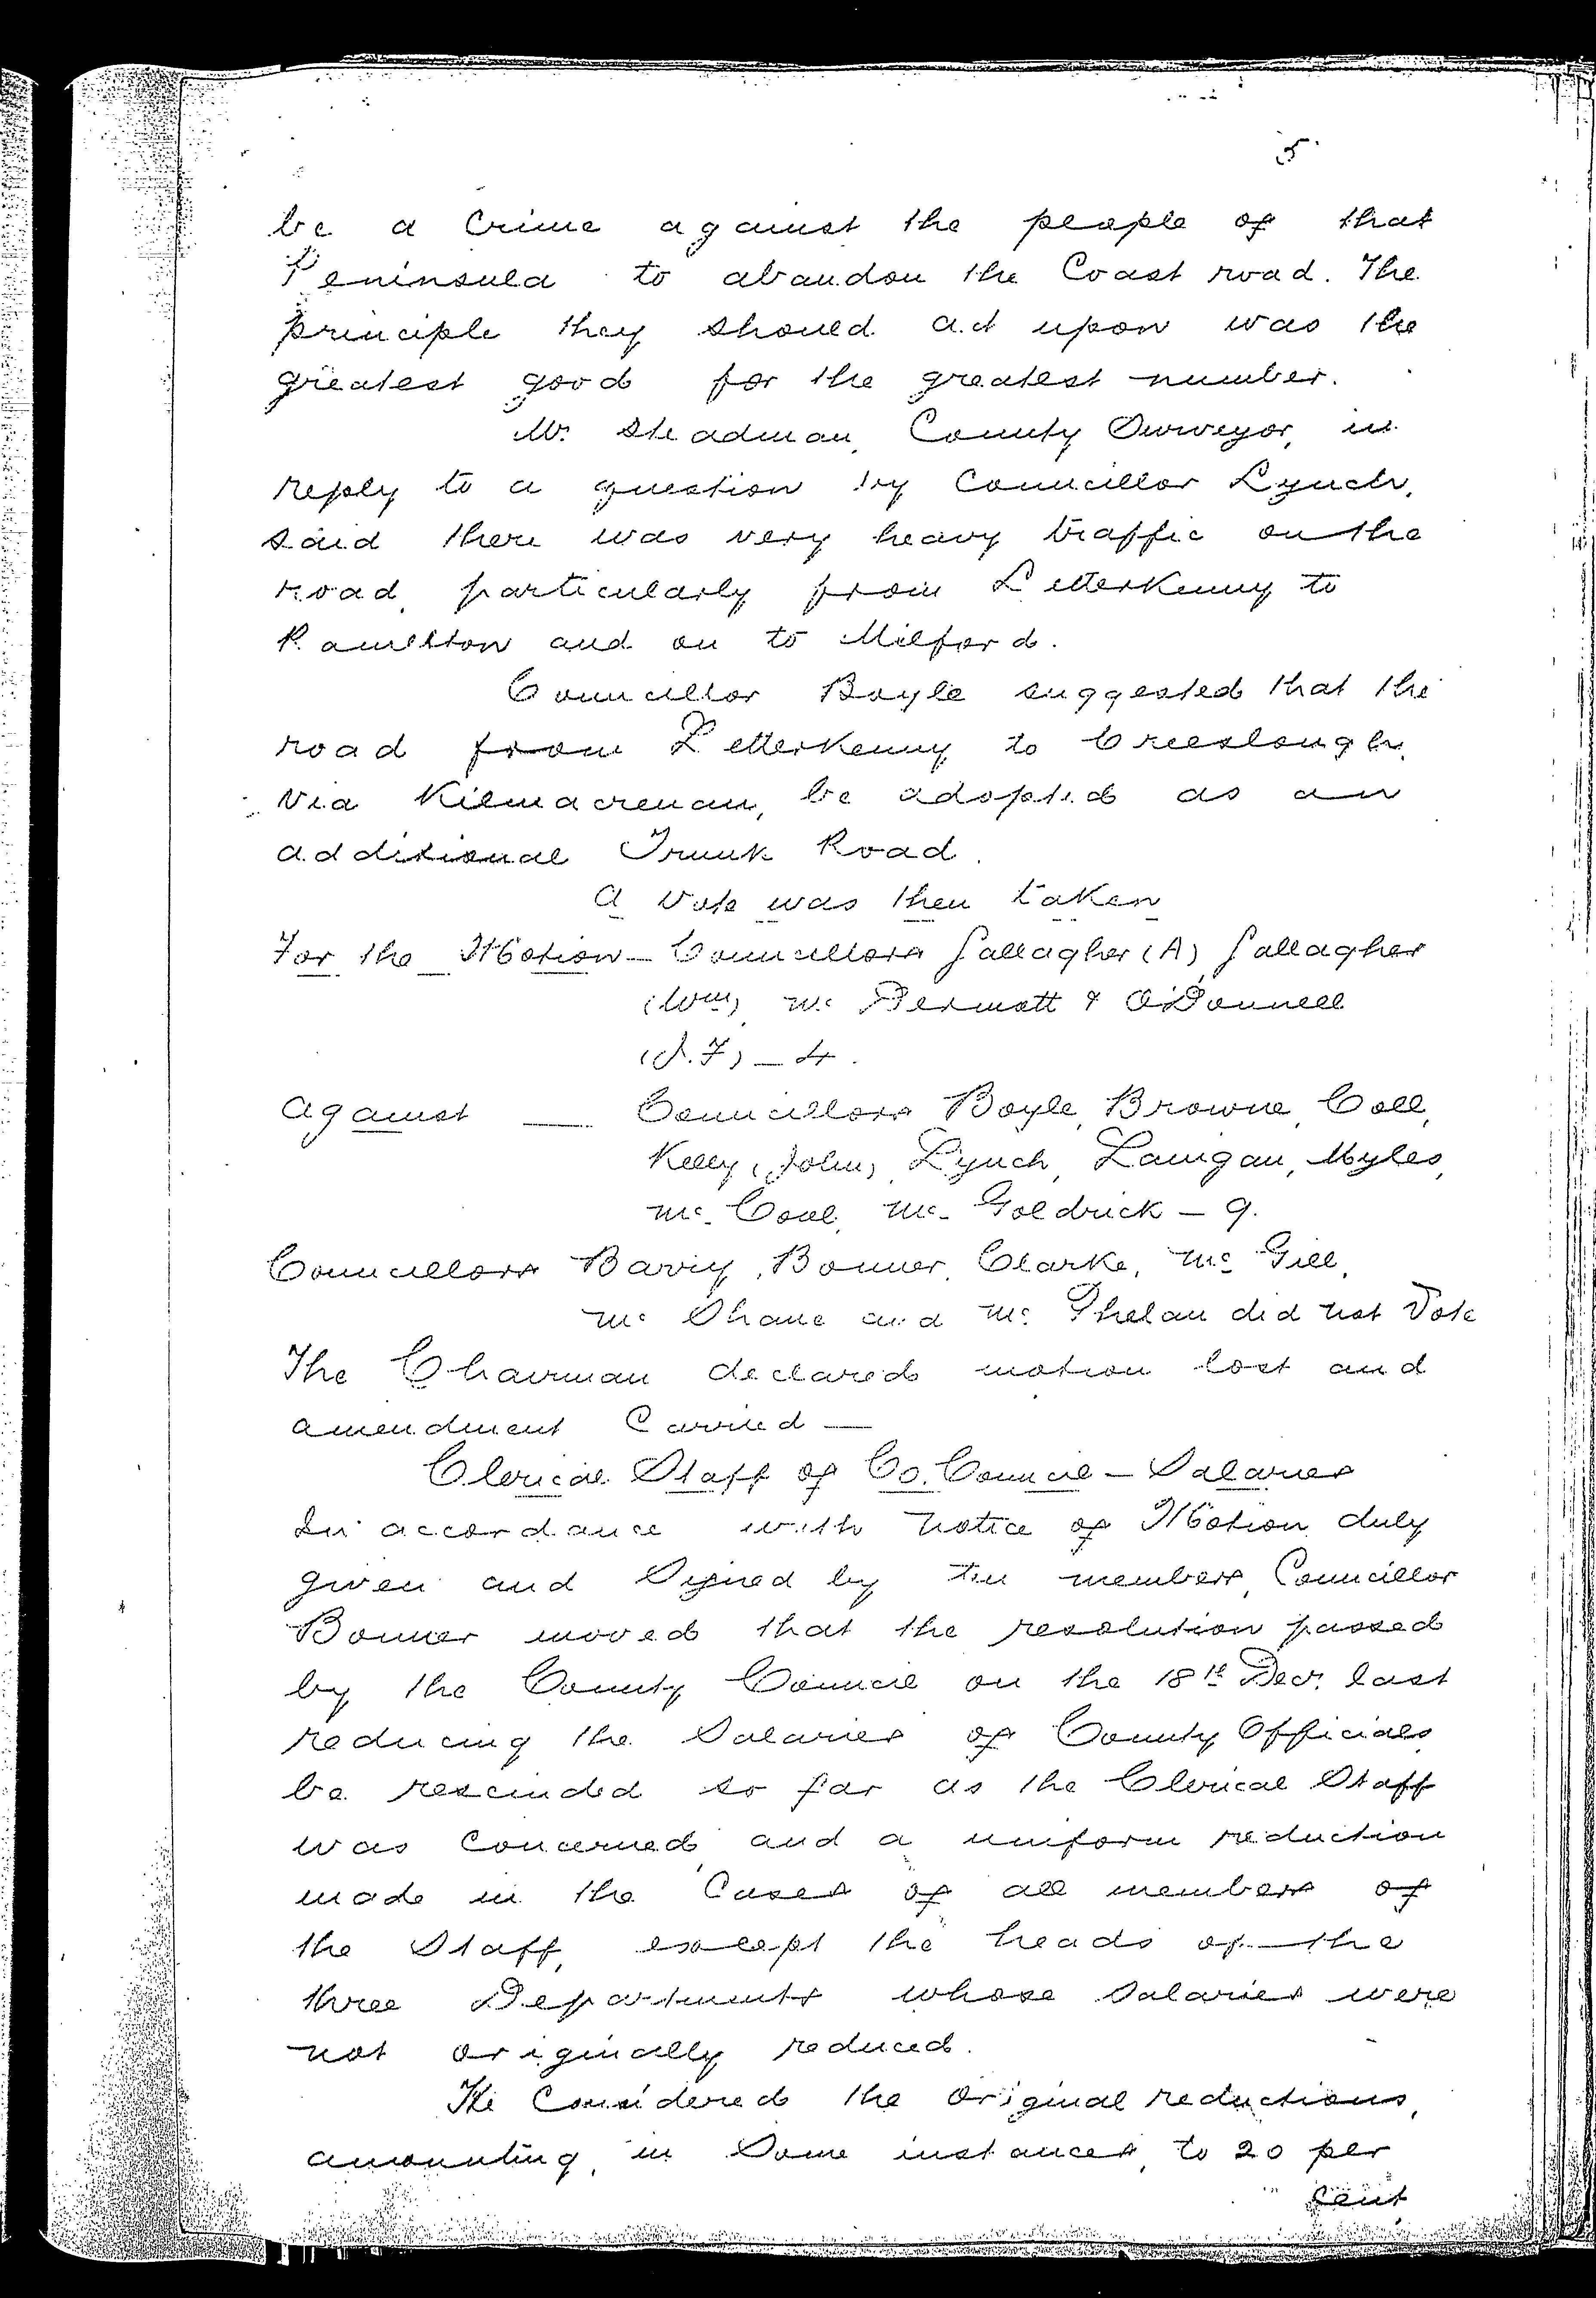 5
be a Crime against the people of that
Peninsula to abandon the Coast road. The
principle they should act upon was the
greatest good for the greatest number.
Mr. Steadman, County Surveyor, in
reply to a question by Councillor Lynch,
said there was very heavy traffic on the
road, particularly from Letterkenny to
Ramelton and on to Milford.
Councillor Boyle suggested that the
road from Letterkenny to Creeslough,
via Kilmacrenan, be adopted as an
additional Trunk Road.
A Vote was then taken
For the Motion - Councillors Gallagher (A), Gallagher
(Wm), McDermott & O'Donnell
(J.F) - 4.
Against — Councillors Boyle, Browne, Coll,
Kelly (John), Lynch, Lanigan, Myles,
Mc. Coul, Mc. Goldrick - 9.
Councillors Barry, Bonner, Clarke, Mc Gill,
Mc Shane and Mc. Phelan did not Vote
The Chairman declared motion lost and
amendment Carried —
Clerical Staff of Co. Council - Salaries
In accordance with notice of Motion duly
given and Signed by ten members, Councillor
Bonner moved that the resolution passed
by the County Council on the 18th Decr. last
reducing the Salaries of County Officials
be rescinded so far as the Clerical Staff
was Concerned, and a uniform reduction
made in the Cases of all members of
the Staff, except the heads of the
three Departments whose Salaries were
not originally reduced.
He Considered the original reductions,
amounting, in Some instances, to 20 per
Cent,